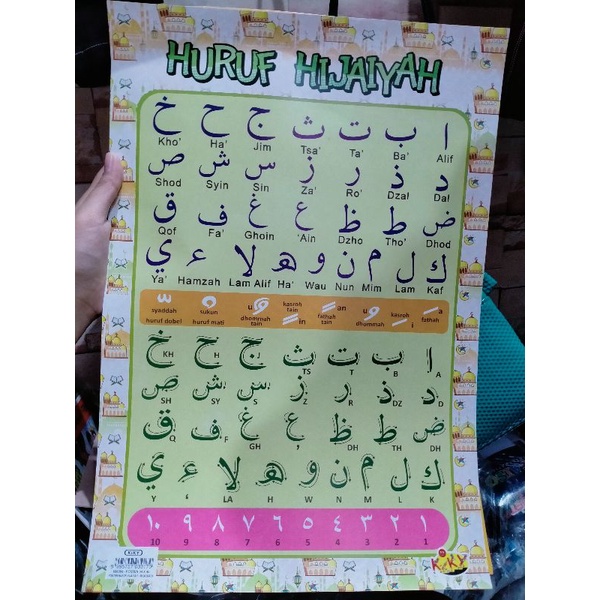 HURUF HIJAIYAH
ا ب ت ث ج ح خ
Kho' Ha' Jim Tsa' Ta' Ba' Alif
د ذ ر ز س ش ص
Shod Syin Sin Za' Ro' Dzal Dal
ض ط ظ ع غ ف ق
Qof Fa' Ghoin 'Ain Dzho Tho' Dhod
ك ل م ن و ه لا ء ي
Ya' Hamzah Lam Alif Ha' Wau Nun Mim Lam Kaf
syaddah huruf dobel
sukun huruf mati
u dhommah tain
kasroh tain in
an fathah tain
u dhommah
kasroh i
a fathah
ا ب ت ث ج ح خ
KH H J TS T B A
د ذ ر ز س ش ص
SH SY S Z R DZ D
ض ط ظ ع غ ف ق
Q F GH ' DH TH DH
ك ل م ن و ه لا ء ي
Y ' LA H W N M L K
١ ٢ ٣ ٤ ٥ ٦ ٧ ٨ ٩ ١٠
10 9 8 7 6 5 4 3 2 1
KIKY